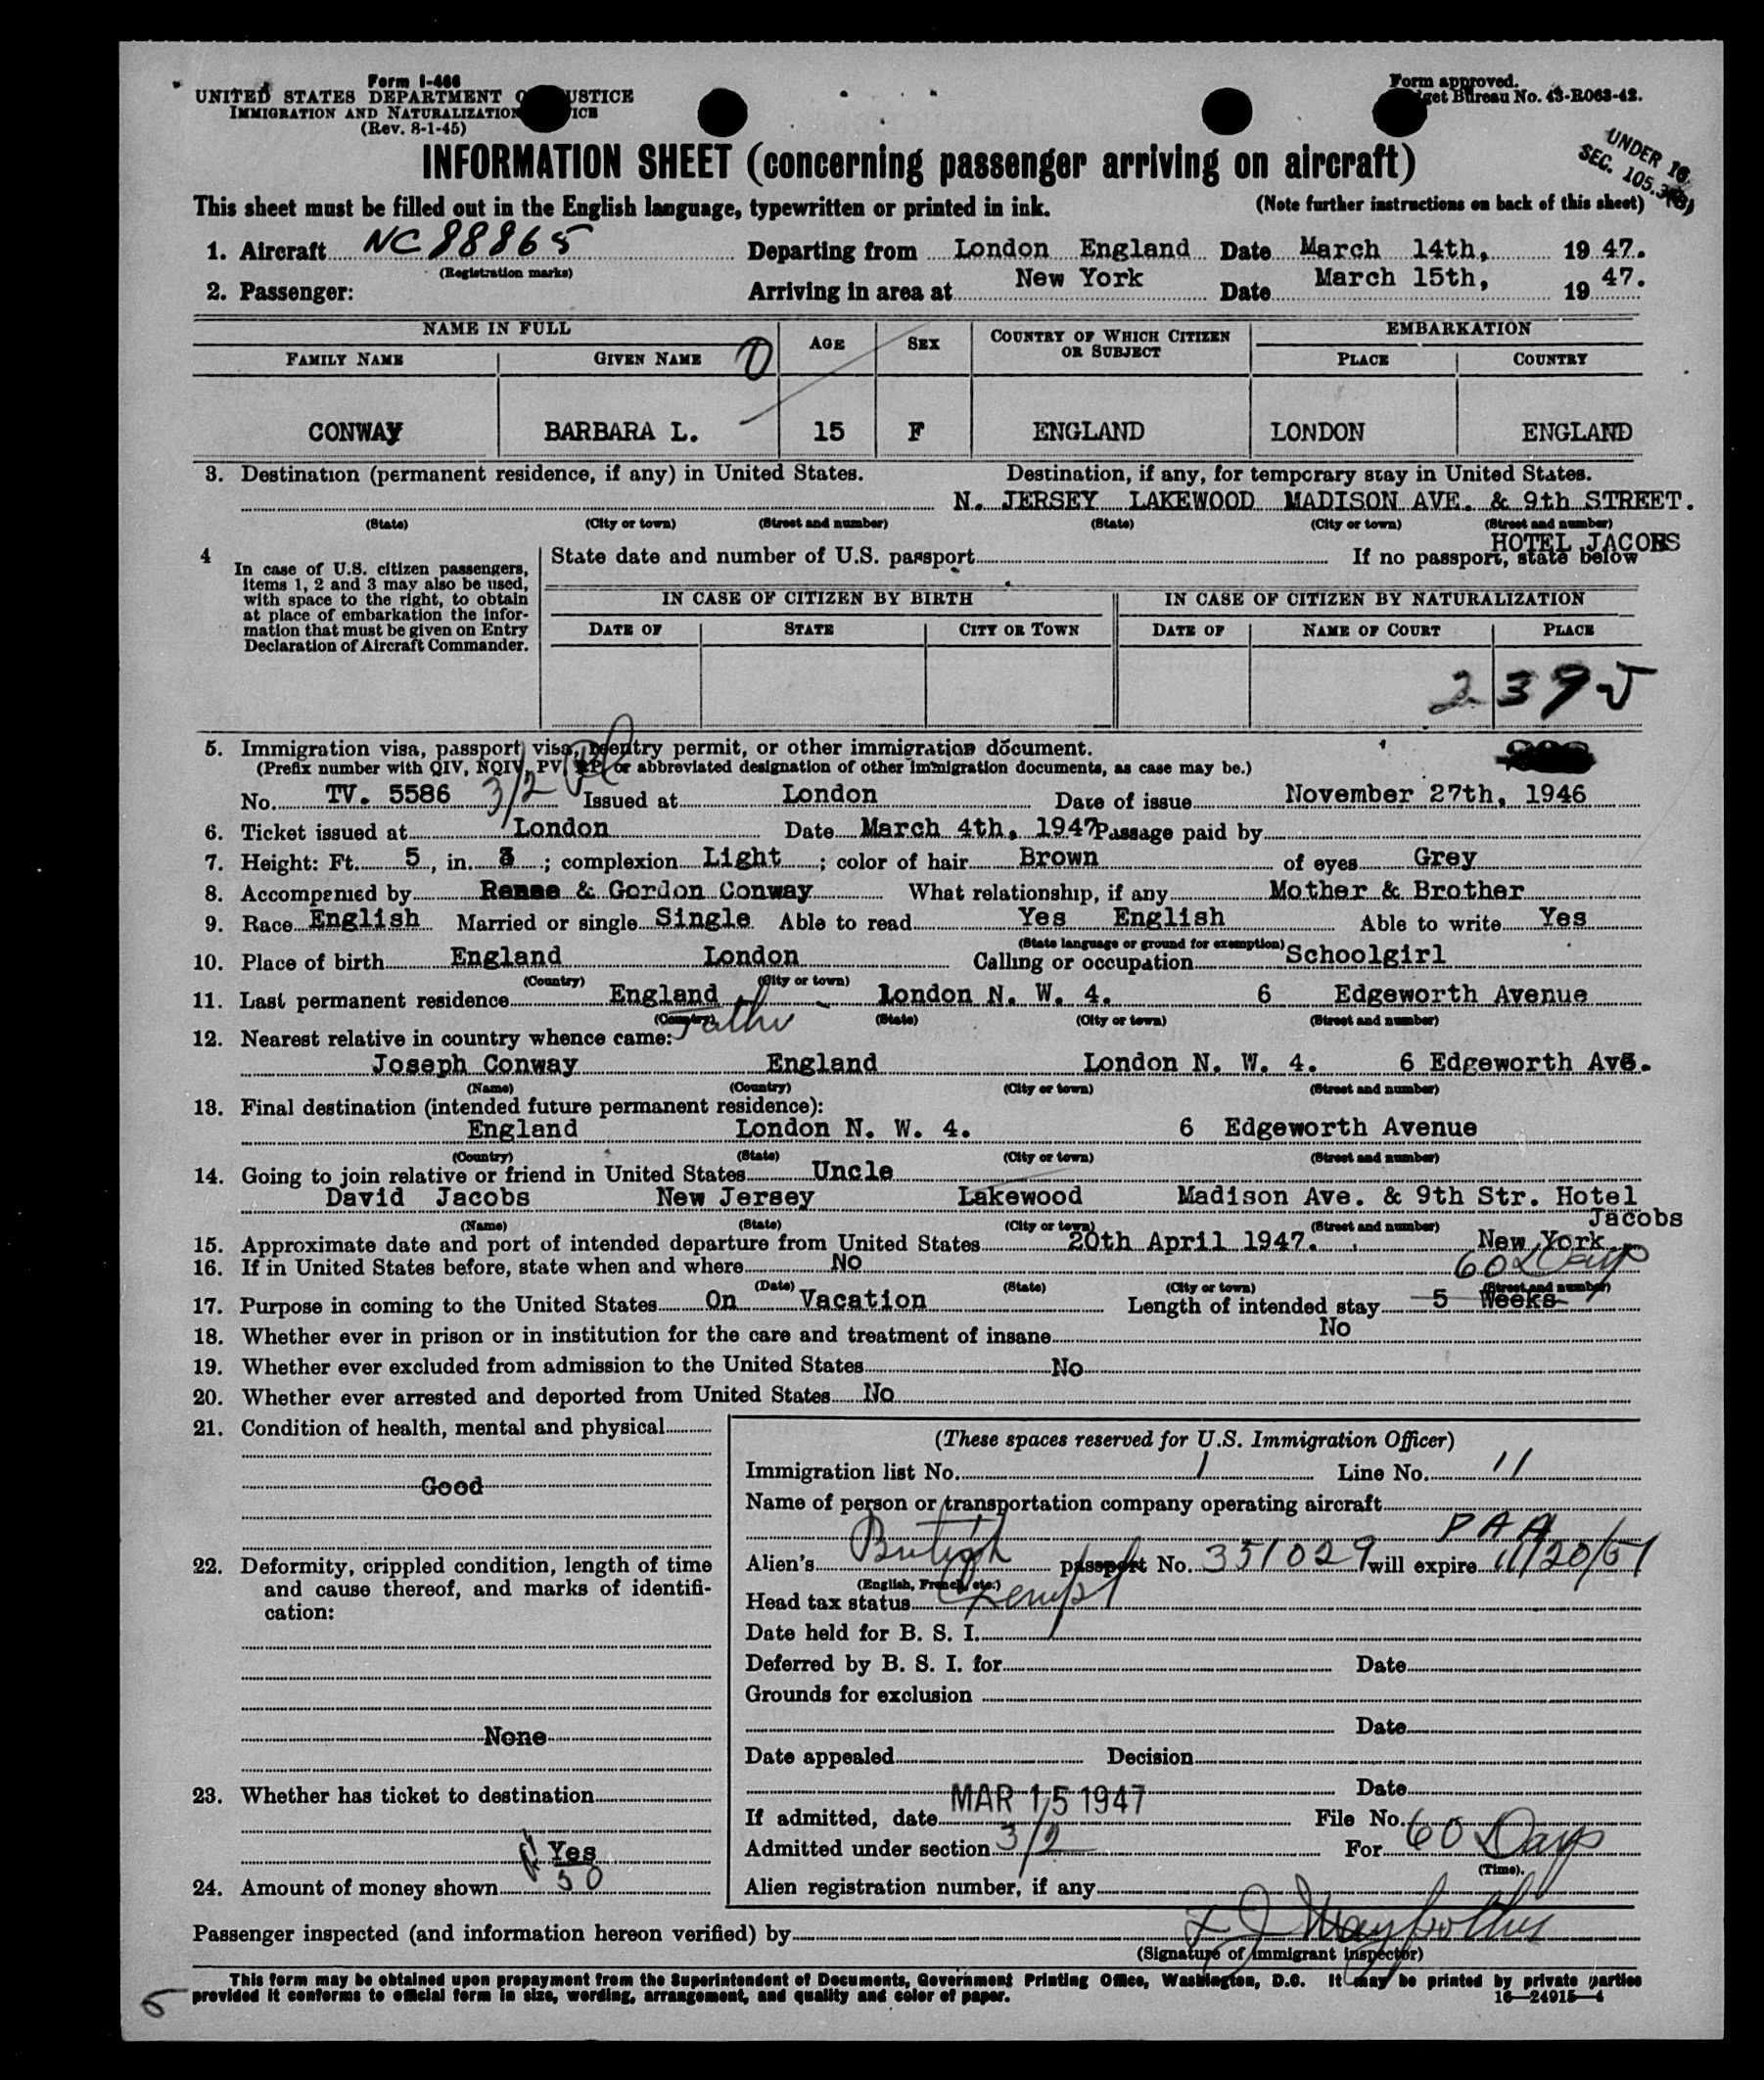 Form I-466
UNITED STATES DEPARTMENT O USTICE
IMMIGRATION AND NATURALIZATION ICE
(Rev. 8-1-45)
Form approved.
get Bureau No. 43-R063-42.
INFORMATION SHEET (concerning passenger arriving on aircraft)
UNDER 16
SEC. 105.3
This sheet must be filled out in the English language, typewritten or printed in ink. (Note further instructions on back of this sheet)
1. Aircraft NC 88865 Departing from London England Date March 14th, 19 47.
(Registration marks)
2. Passenger: Arriving in area at New York Date March 15th, 19 47.
NAME IN FULL AGE SEX COUNTRY OF WHICH CITIZEN OR SUBJECT EMBARKATION
FAMILY NAME GIVEN NAME PLACE COUNTRY
CONWAY BARBARA L. 15 F ENGLAND LONDON ENGLAND
3. Destination (permanent residence, if any) in United States. Destination, if any, for temporary stay in United States.
N. JERSEY LAKEWOOD MADISON AVE. & 9th STREET.
(State) (City or town) (Street and number) (State) (City or town) (Street and number)
HOTEL JACOBS
4 In case of U.S. citizen passengers, items 1, 2 and 3 may also be used, with space to the right, to obtain at place of embarkation the information that must be given on Entry Declaration of Aircraft Commander.
State date and number of U.S. passport If no passport, state below
IN CASE OF CITIZEN BY BIRTH IN CASE OF CITIZEN BY NATURALIZATION
DATE OF STATE CITY OR TOWN DATE OF NAME OF COURT PLACE
239 J
5. Immigration visa, passport visa, reentry permit, or other immigration document.
(Prefix number with QIV, NQIV, PV, RP, or abbreviated designation of other immigration documents, as case may be.)
No. TV. 5586 3/2 Issued at London Date of issue November 27th, 1946
6. Ticket issued at London Date March 4th, 1947 Passage paid by
7. Height: Ft. 5, in. 3; complexion Light; color of hair Brown of eyes Grey
8. Accompanied by Renee & Gordon Conway What relationship, if any Mother & Brother
9. Race English Married or single Single Able to read Yes English Able to write Yes
(State language or ground for exemption)
10. Place of birth England London Calling or occupation Schoolgirl
(Country) (City or town)
11. Last permanent residence England London N. W. 4. 6 Edgeworth Avenue
(Country) (State) (City or town) (Street and number)
12. Nearest relative in country whence came:
Joseph Conway England London N. W. 4. 6 Edgeworth Ave.
(Name) (Country) (City or town) (Street and number)
13. Final destination (intended future permanent residence):
England London N. W. 4. 6 Edgeworth Avenue
(Country) (State) (City or town) (Street and number)
14. Going to join relative or friend in United States Uncle
David Jacobs New Jersey Lakewood Madison Ave. & 9th Str. Hotel
Jacobs
(Name) (State) (City or town) (Street and number)
15. Approximate date and port of intended departure from United States 20th April 1947. New York
16. If in United States before, state when and where No
60 Days
(Date) (State) (City or town) (Street and number)
17. Purpose in coming to the United States On Vacation Length of intended stay 5 Weeks
18. Whether ever in prison or in institution for the care and treatment of insane No
19. Whether ever excluded from admission to the United States No
20. Whether ever arrested and deported from United States No
21. Condition of health, mental and physical
Good
22. Deformity, crippled condition, length of time and cause thereof, and marks of identification:
None
23. Whether has ticket to destination
Yes
24. Amount of money shown 50
(These spaces reserved for U.S. Immigration Officer)
Immigration list No. 1 Line No. 11
Name of person or transportation company operating aircraft
PAA
Alien's British passport No. 351029 will expire 11/20/51
(English, French, etc.)
Head tax status Exempt
Date held for B. S. I.
Deferred by B. S. I. for Date
Grounds for exclusion
Date
Date appealed Decision
Date
If admitted, date MAR 15 1947 File No.
Admitted under section 3/2 For 60 Days
(Time).
Alien registration number, if any
Passenger inspected (and information hereon verified) by
(Signature of immigrant inspector)
This form may be obtained upon prepayment from the Superintendent of Documents, Government Printing Office, Washington, D.C. It may be printed by private parties
provided it conforms to official form in size, wording, arrangement, and quality and color of paper. 16—24915-4
5